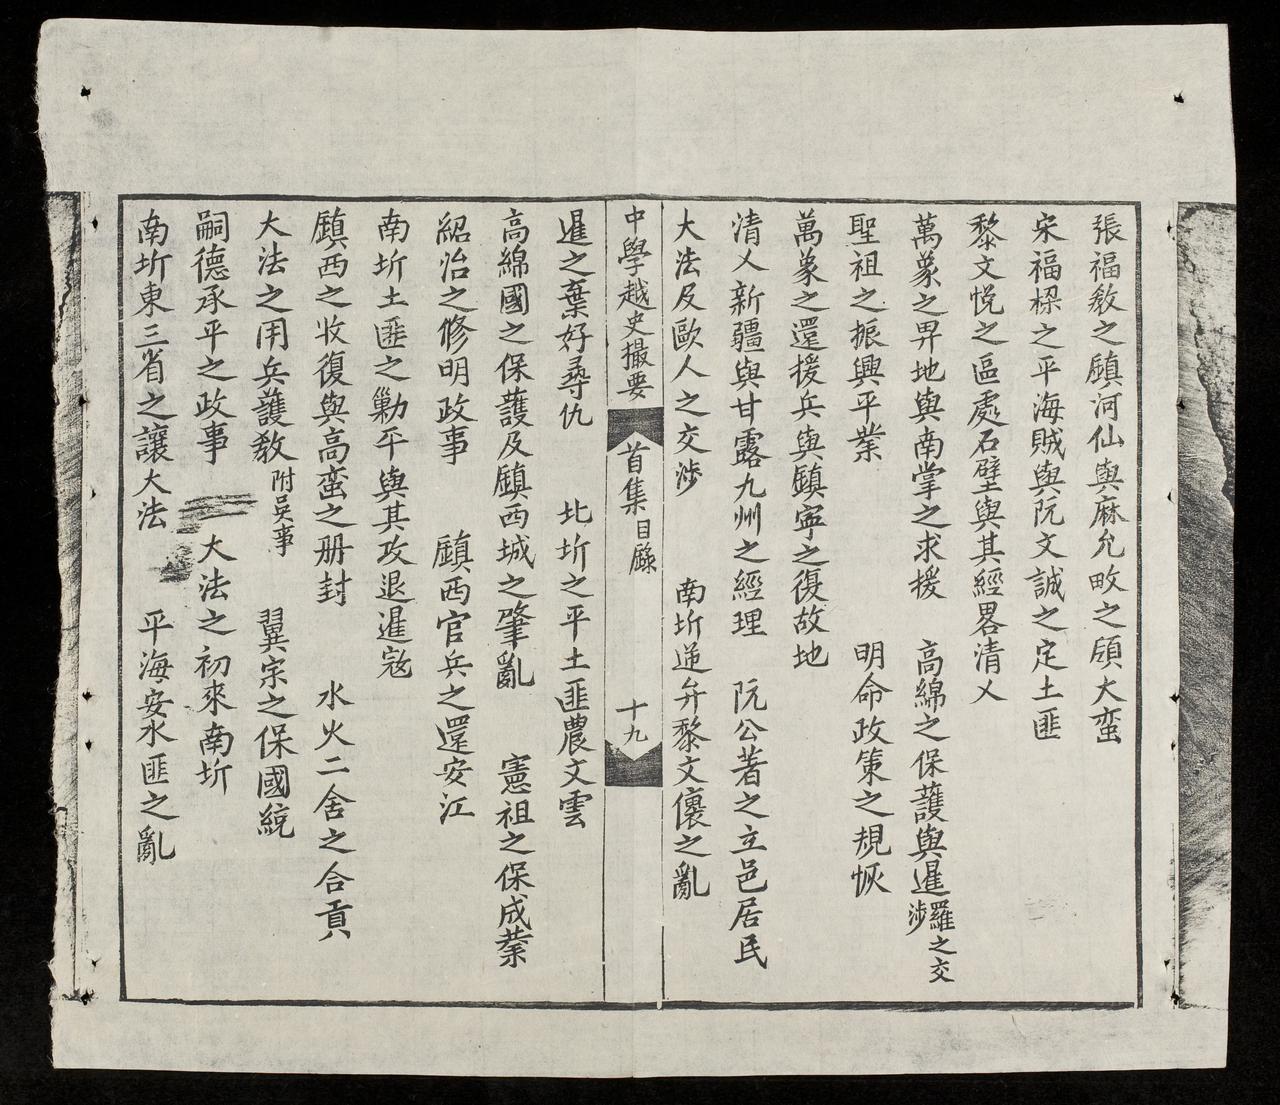 張福敎之願河仙與麻允畋之頋大蛮
宋福樑之平海賊與阮文誠之定土匪
黎文悅之區處石壁與其經畧清乂
萬象之畀地與南掌之求援 高綿之保護與暹羅之交涉
聖祖之振興平業 明命政策之規恢
萬象之還援兵與鎮寧之復故地
清乂新疆與甘露九州之經理 阮公著之立邑居民
大法及歐人之交涉 南圻逆弁黎文儴之亂
中學越史撮要 首集 目錄 十九
暹之棄好尋仇 北圻之平土匪農文雲
高綿國之保護及鎮西城之肇亂 憲祖之保成業
紹治之修明政事 鎮西官兵之還安江
南圻土匪之勦平與其攻退暹寇
鎮西之收復與高蛮之册封 水火二舍之合貢
大法之用兵護敎 附吳事 翼宗之保國統
嗣德承平之政事 大法之初來南圻
南圻東三省之讓大法 平海安水匪之亂